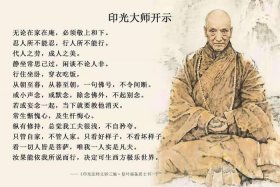 印光大师开示
无论在家在庵，必须敬上和下。
忍人所不能忍，行人所不能行。
代人之劳，成人之美。
静坐常思己过，闲谈不论人非。
行住坐卧，穿衣吃饭，
从朝至暮，从暮至朝，一句佛号，不令间断。
或小声念，或默念，除念佛外，不起别念。
若或妄念一起，当下就要教他消灭。
常生惭愧心，及生忏悔心。
纵有修持，总觉我工夫很浅，不自矜夸。
只管自家，不管人家。只看好样子，不看坏样子。
看一切人皆是菩萨，唯我一人实是凡夫。
汝果能依我所说而行，决定可生西方极乐世界。